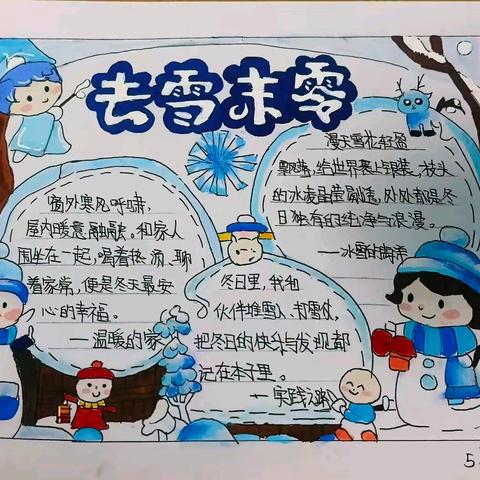 去雪末零
窗外寒风呼啸,
屋内暖意融融。和家人
围坐在一起,喝着热汤、聊
着家常,便是冬天最安
心的幸福。
—温暖的家
漫天雪花轻盈
飘落,给世界裹上银装。枝头
的冰凌晶莹剔透,处处都是冬
日独有的纯净与浪漫。
—冰雪的
冬日里,我和
伙伴堆雪人、打雪仗,
把冬日的快乐与发现都
记在本子里。
—实践
5